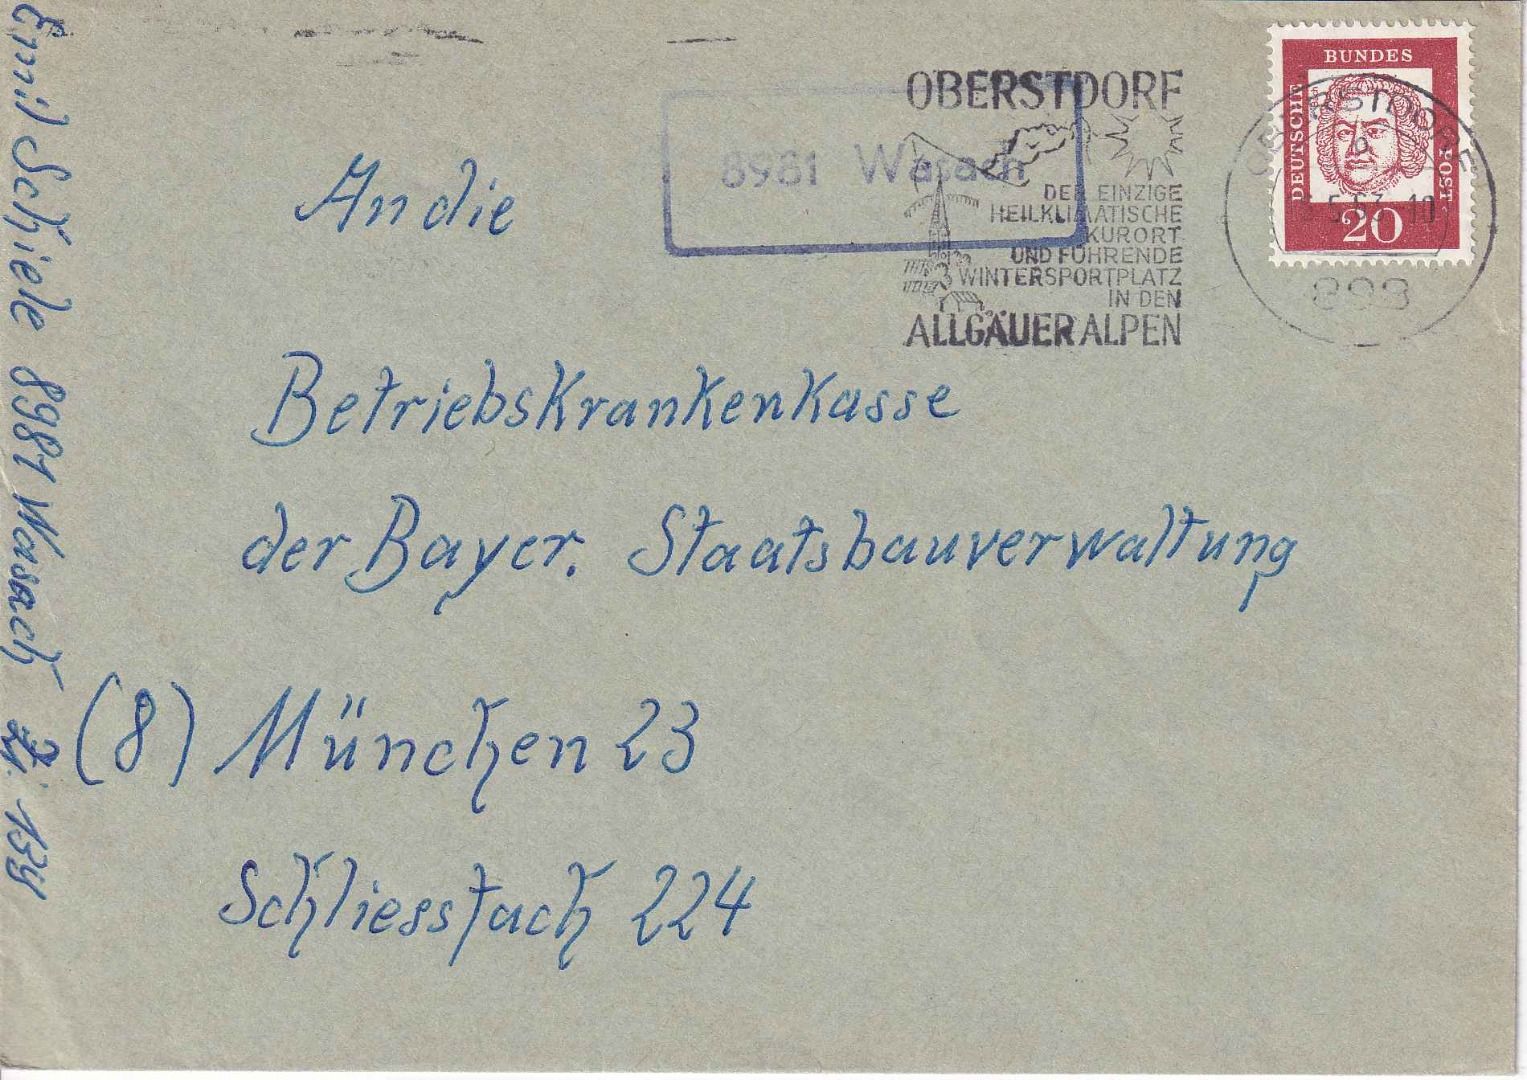 Emil Schiele 8981 Wasach Zi. 134
An die
Betriebskrankenkasse
der Bayer. Staatsbauverwaltung
(8) München 23
Schliessfach 224
8981 Wasach
OBERSTDORF
DER EINZIGE
HEILKLIMATISCHE
KURORT
UND FÜHRENDE
WINTERSPORTPLATZ
IN DEN
ALLGÄUER ALPEN
OBERSTDORF
898
DEUTSCHE
BUNDES
POST
20